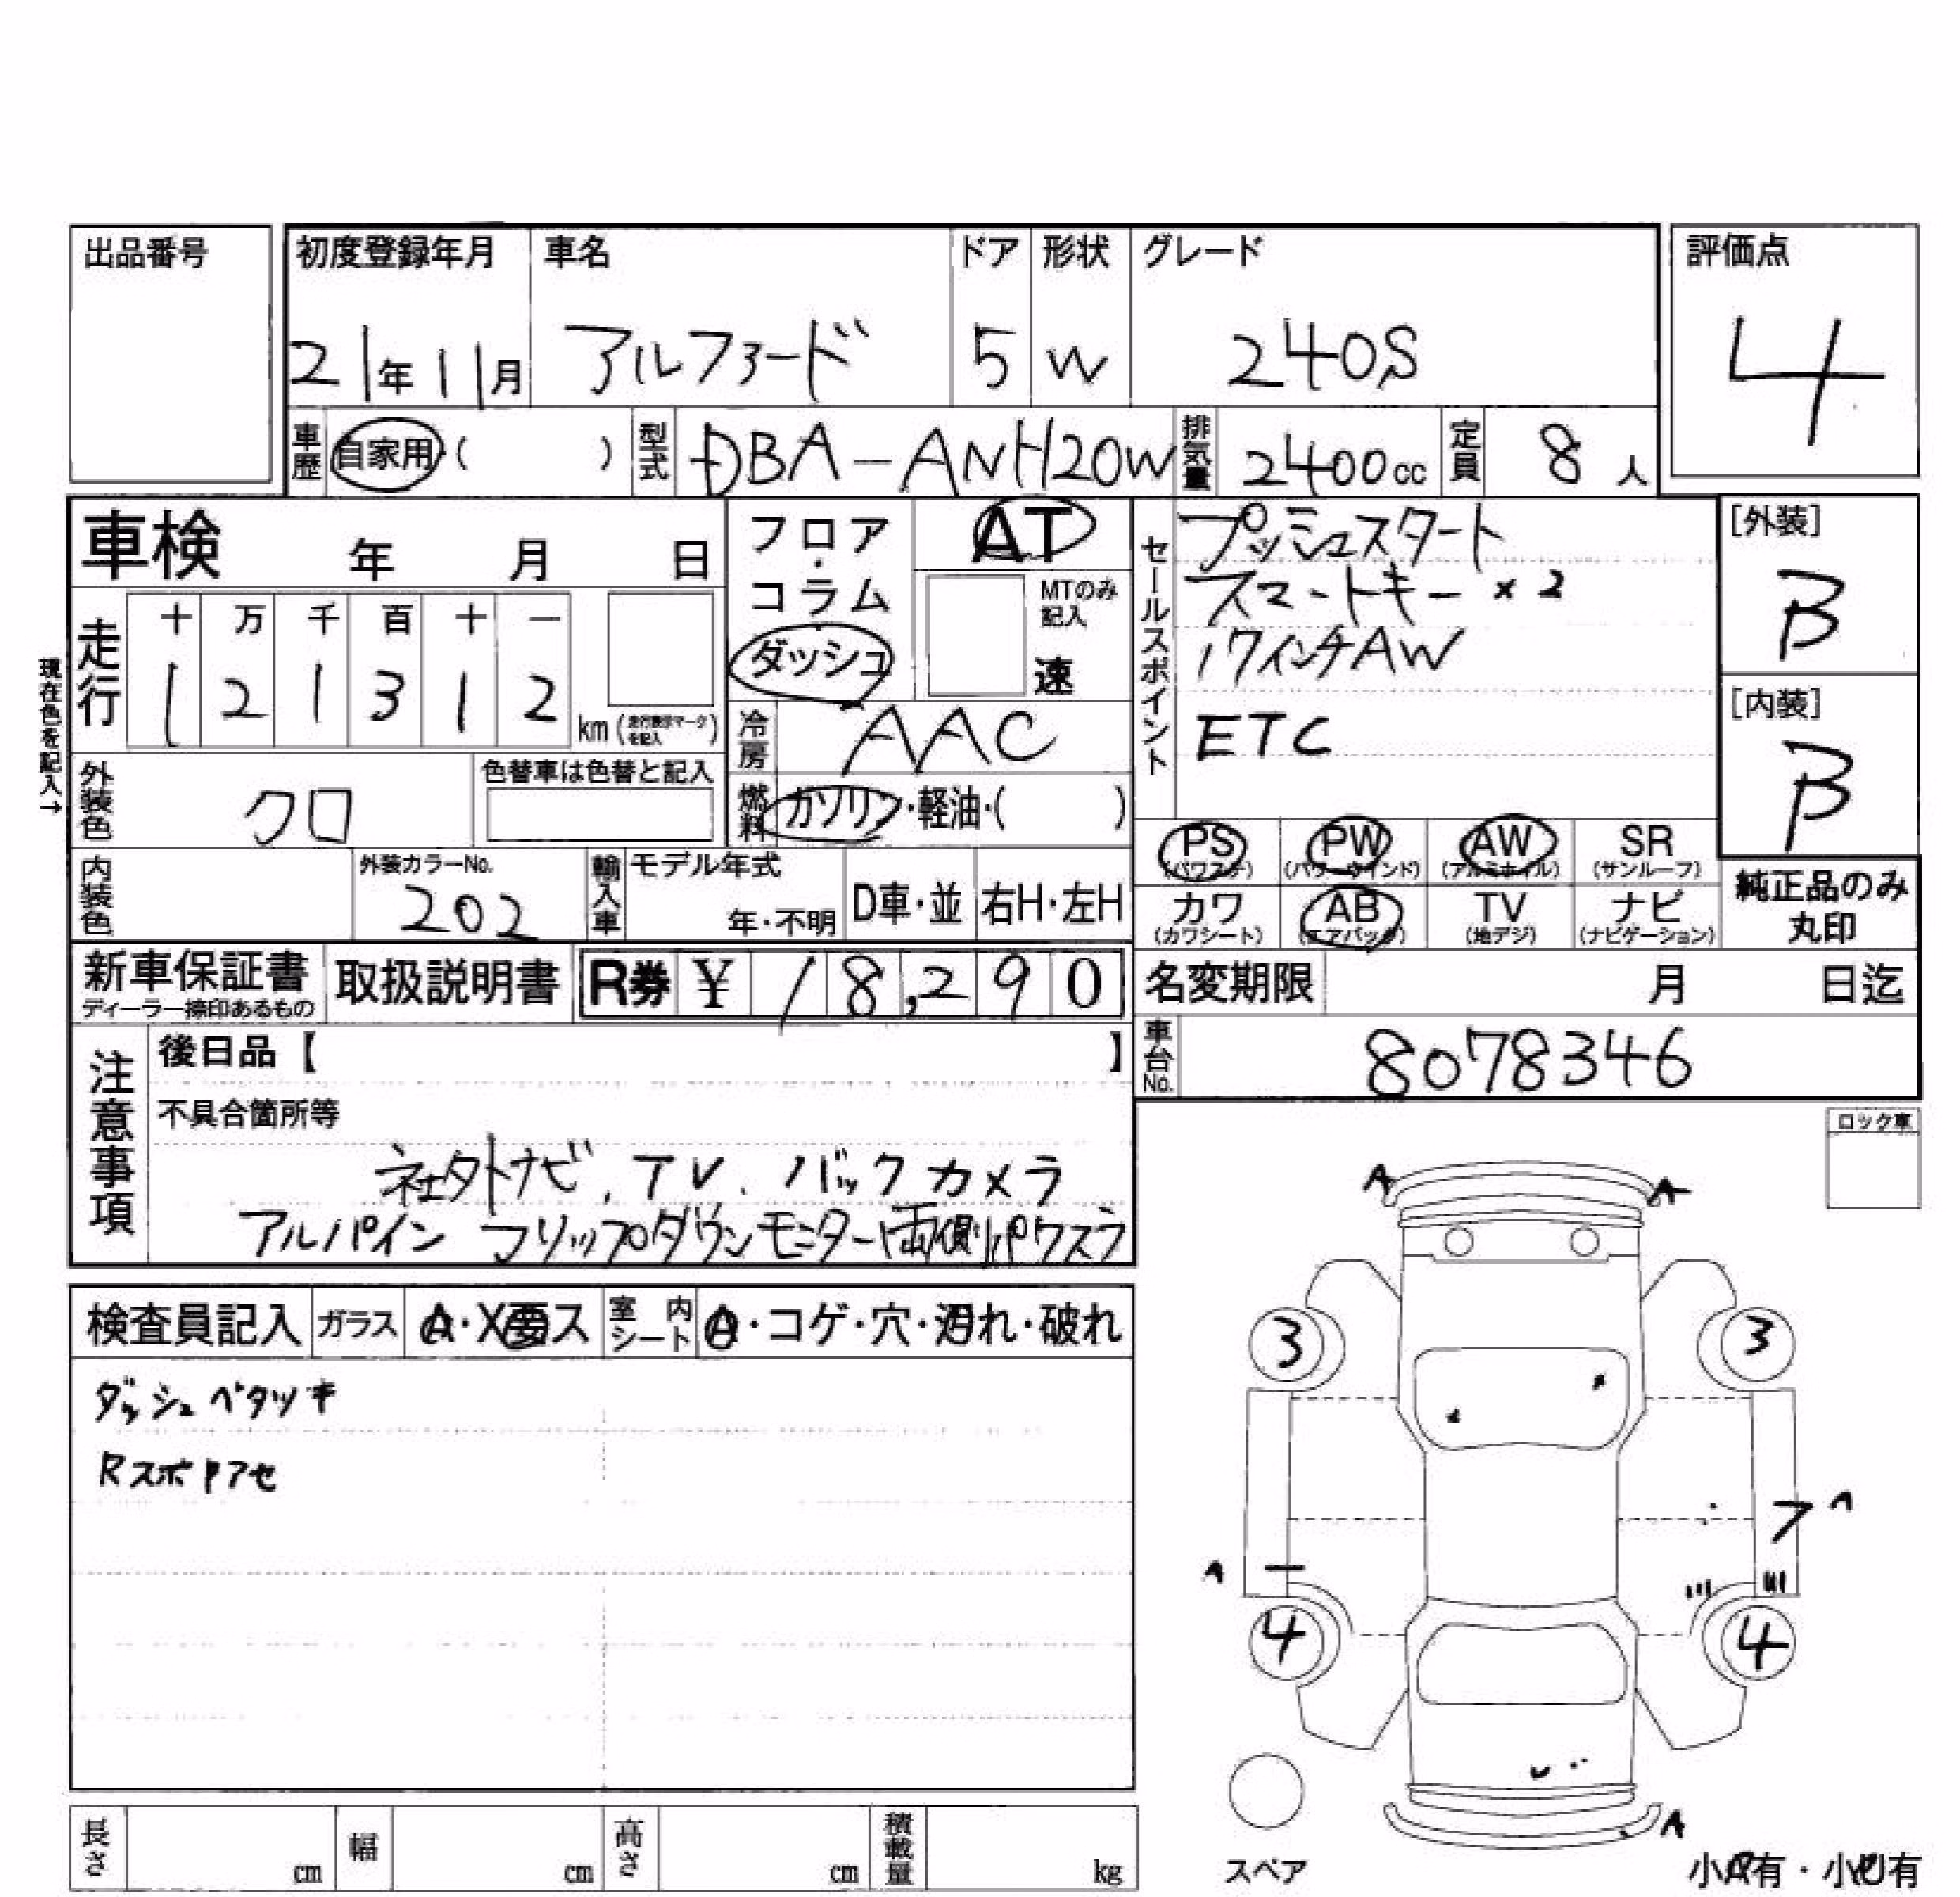 出品番号
初度登録年月 車名 ドア 形状 グレード 評価点
21年11月 アルファード 5 W 240S 4
車歴 自家用・( ) 型式 DBA-ANH20W 排気量 2400cc 定員 8人
車検 年 月 日
フロア・コラム ダッシュ
AT
MTのみ記入
速
セールスポイント
プッシュスタート
スマートキー×2
17インチAW
ETC
[外装]
B
[内装]
B
走行 十 万 千 百 十 一
1 2 1 3 1 2 km (走行表示マークを記入)
現在色を記入→
冷房 AAC
外装色 クロ 色替車は色替と記入
燃料 ガソリン・軽油・( )
PS (パワステ) PW (パワーウインド) AW (アルミホイル) SR (サンルーフ)
カワ (カワシート) AB (エアバッグ) TV (地デジ) ナビ (ナビゲーション)
純正品のみ
丸印
内装色 外装カラーNo. 202 輸入車 モデル年式 年・不明 D車・並 右H・左H
新車保証書 ディーラー捺印あるもの 取扱説明書 R券 ¥ 18,290
名変期限 月 日迄
車台No. 8078346
注意事項
後日品【 】
不具合箇所等
社外ナビ、TV、バックカメラ
アルパイン フリップダウンモニター両側パワスラ
ロック車
検査員記入 ガラス A・X要ス 室内シート A・コゲ・穴・汚れ・破れ
ダッシュベタツキ
RスポTアセ
A A
3 3
A
A
4 4
A
スペア
小A有・小U有
長さ cm 幅 cm 高さ cm 積載量 kg